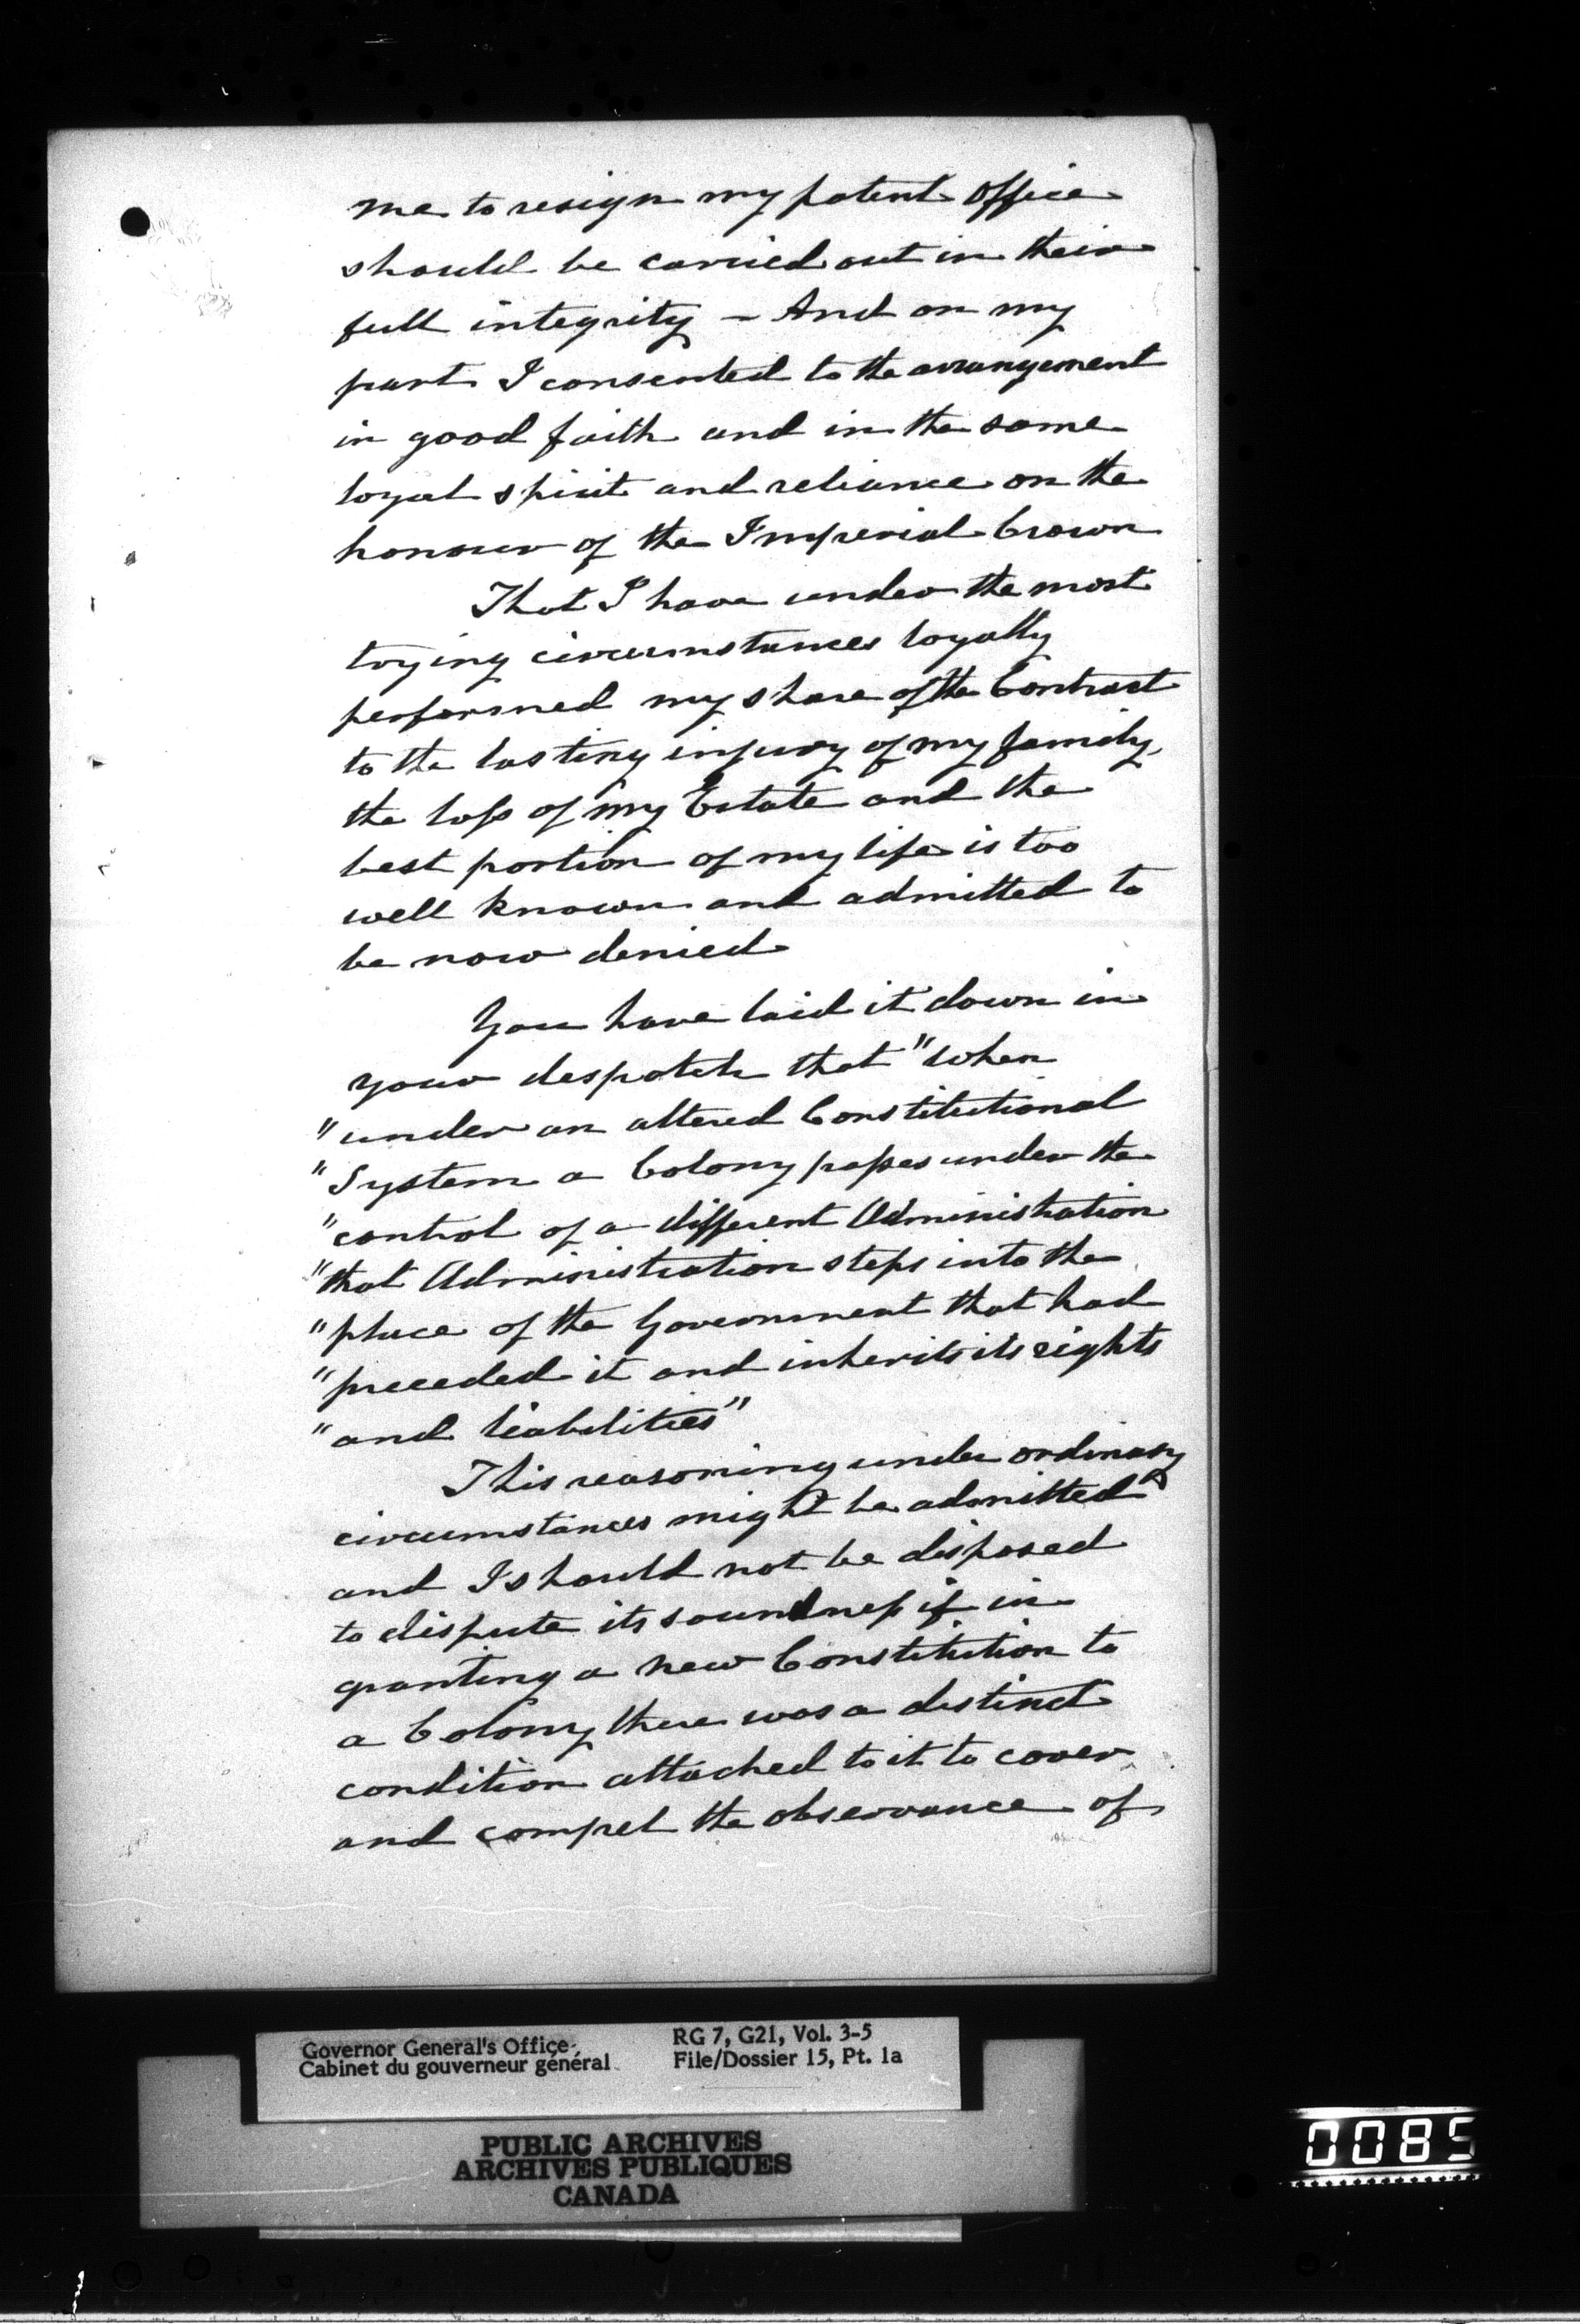 me to resign my patent office
should be carried out in their
full integrity – And on my
part I consented to the arrangement
in good faith and in the same
loyal spirit and reliance on the
honour of the Imperial Crown
That I have under the most
trying circumstances loyally
performed my share of the Contract
to the lasting injury of my family,
the loss of my Estate and the
best portion of my life is too
well known and admitted to
be now denied
You have laid it down in
your despatch that "when
"under an altered Constitutional
"System a Colony passes under the
"control of a different Administration
"that Administration steps into the
"place of the Government that had
"preceded it and inherits its rights
"and liabilities"
This reasoning under ordinary
circumstances might be admitted
and I should not be disposed
to dispute its soundness if in
granting a new Constitution to
a Colony there was a distinct
condition attached to it to cover
and compel the observance of
Governor General's Office
Cabinet du gouverneur général
RG 7, G21, Vol. 3-5
File/Dossier 15, Pt. 1a
PUBLIC ARCHIVES
ARCHIVES PUBLIQUES
CANADA
0085